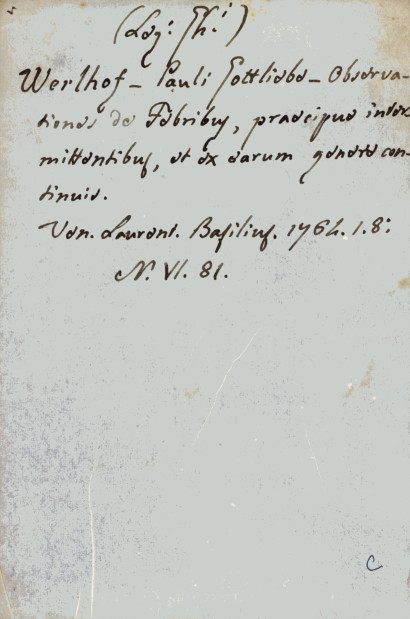 (Leg: Th:)
Werlhof – Pauli Gottliebe – Observa-
tiones de Febribus, praecipue inter
mittentibus, et ex earum genere con-
tinuis.
Ven. Laurent. Basilius. 1764. 1. 8:
N. VI. 81.
C